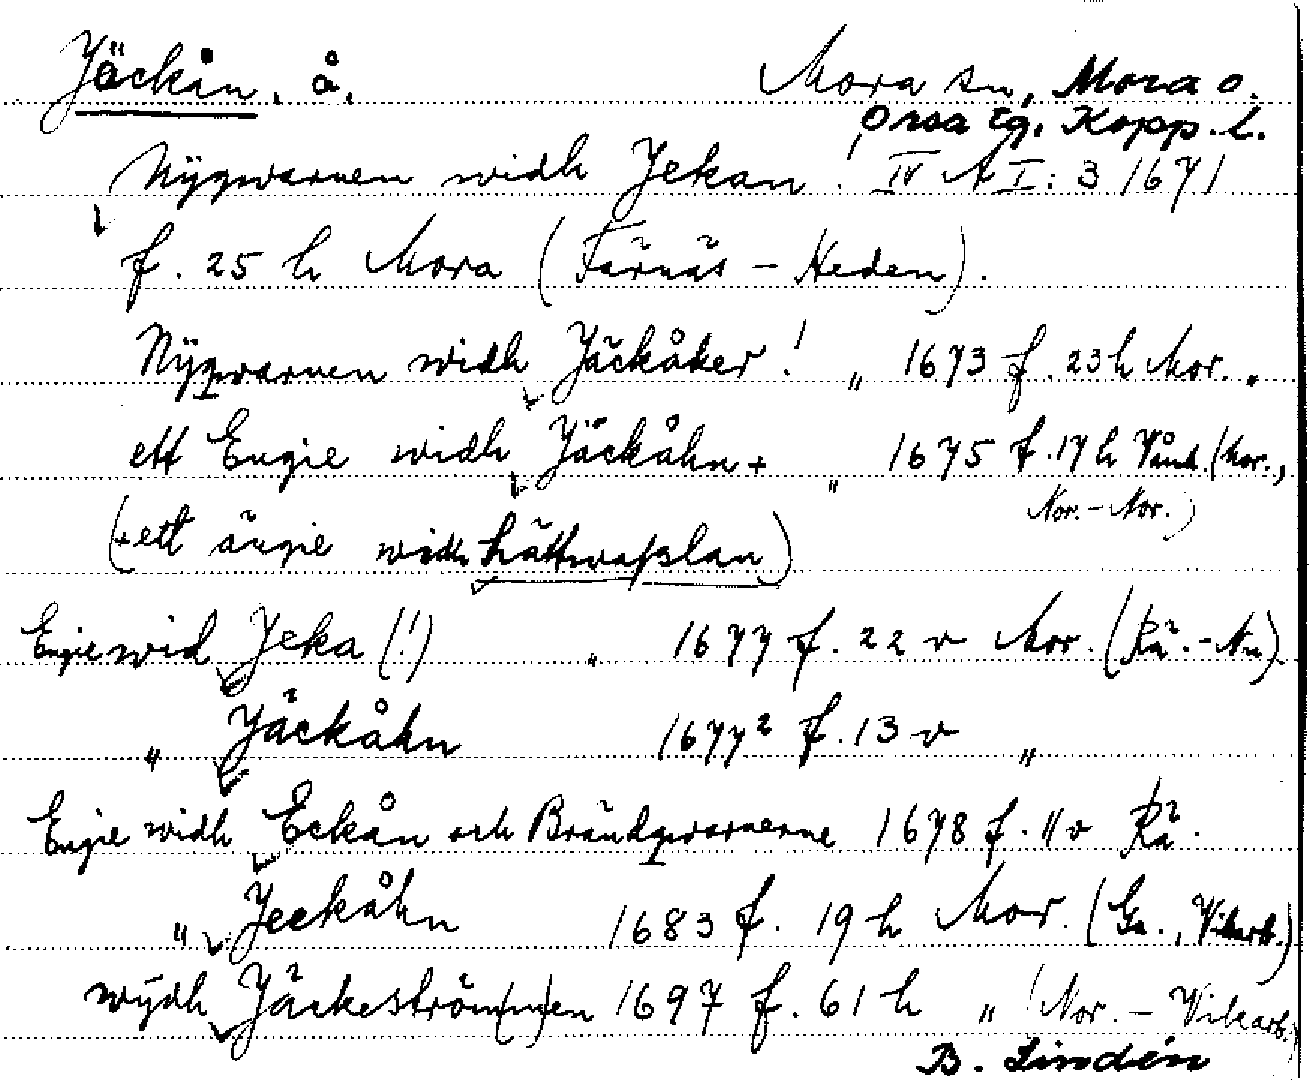 Jäckån, å. Mora sn, Mora o.
Orsa tg. Kopp. l.
Nÿqwarnen widh Jekan ! IV A I: 3 1671
f. 25 h Mora (Färnäs – Heden).
Nÿqwarnen widh Jäckåker ! " 1673 f. 23 h Mor. "
ett Engie widh Jäckåhn + " 1675 f. 17 h Våmh. (Mor.,
Nor.-Nor.)
(+ ett ängie widh hättwaßlan)
Engie wid Jeka (!) " 1677 f. 22 v Mor. (Rä.-Nu)
" Jäckåhn 1677² f. 13 v "
Engie widh Eckån och Brändqwarnerne 1678 f. 11 v Rä.
" Jeckåhn 1683 f. 19 h Mor. (Ga., Vikarb.)
wÿdh Jäckeström(m)en 1697 f. 61 h " (Nor. – Vikarb.)
B. Lindén